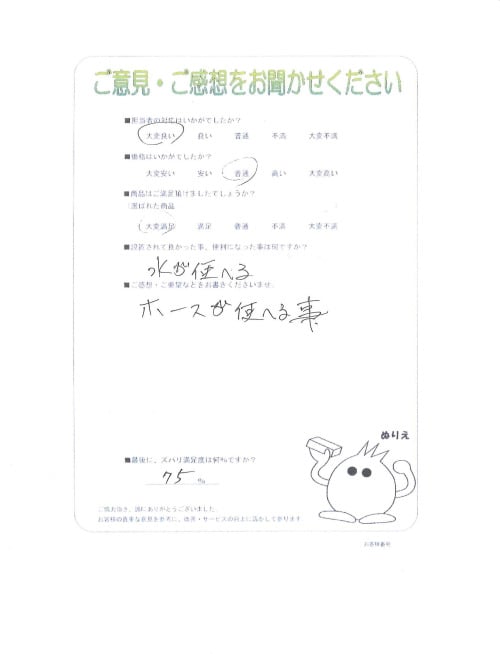 ご意見・ご感想をお聞かせください
■担当者の対応はいかがでしたか？
大変良い 良い 普通 不満 大変不満
■価格はいかがでしたか？
大変安い 安い 普通 高い 大変高い
■商品はご満足頂けましたでしょうか？
選ばれた商品
大変満足 満足 普通 不満 大変不満
■設置されて良かった事、便利になった事は何ですか？
水が使へる
■ご感想・ご要望などをお書きくださいませ。
ホースが使へる事
ぬりえ
■最後に、ズバリ満足度は何％ですか？
75 ％
ご協力頂き、誠にありがとうございました。
お客様の貴重な意見を参考に、改善・サービスの向上に活かして参ります
お客様番号